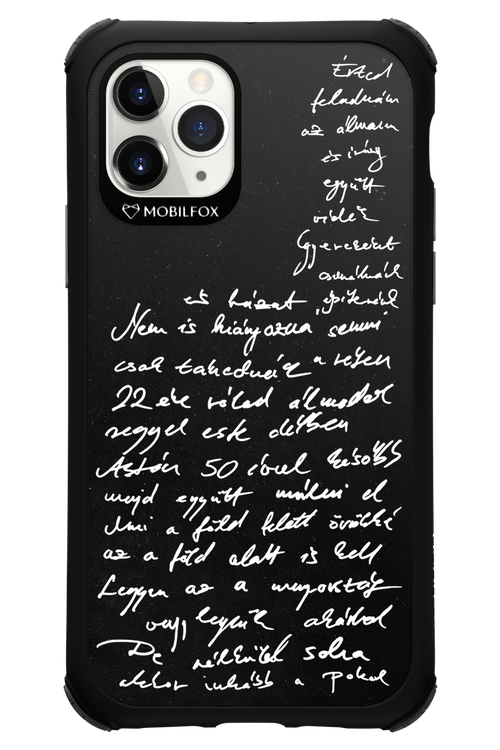 MOBILFOX
Érted
feladnám
az álmaim
és így
együtt
vidék
Gyerekeket
csinálnánk
és házat építenénk
Nem is hiányozna semmi
csak takednéz a réten
22 éve rólad álmodok
reggel este délben
Aztán 50 évvel később
majd együtt múlni el
Ami a föld felett örökké
az a föld alatt is kell
Legyen az a mennyország
vagy legyünk akárhol
De nélküled soha
akkor inkább a pokol